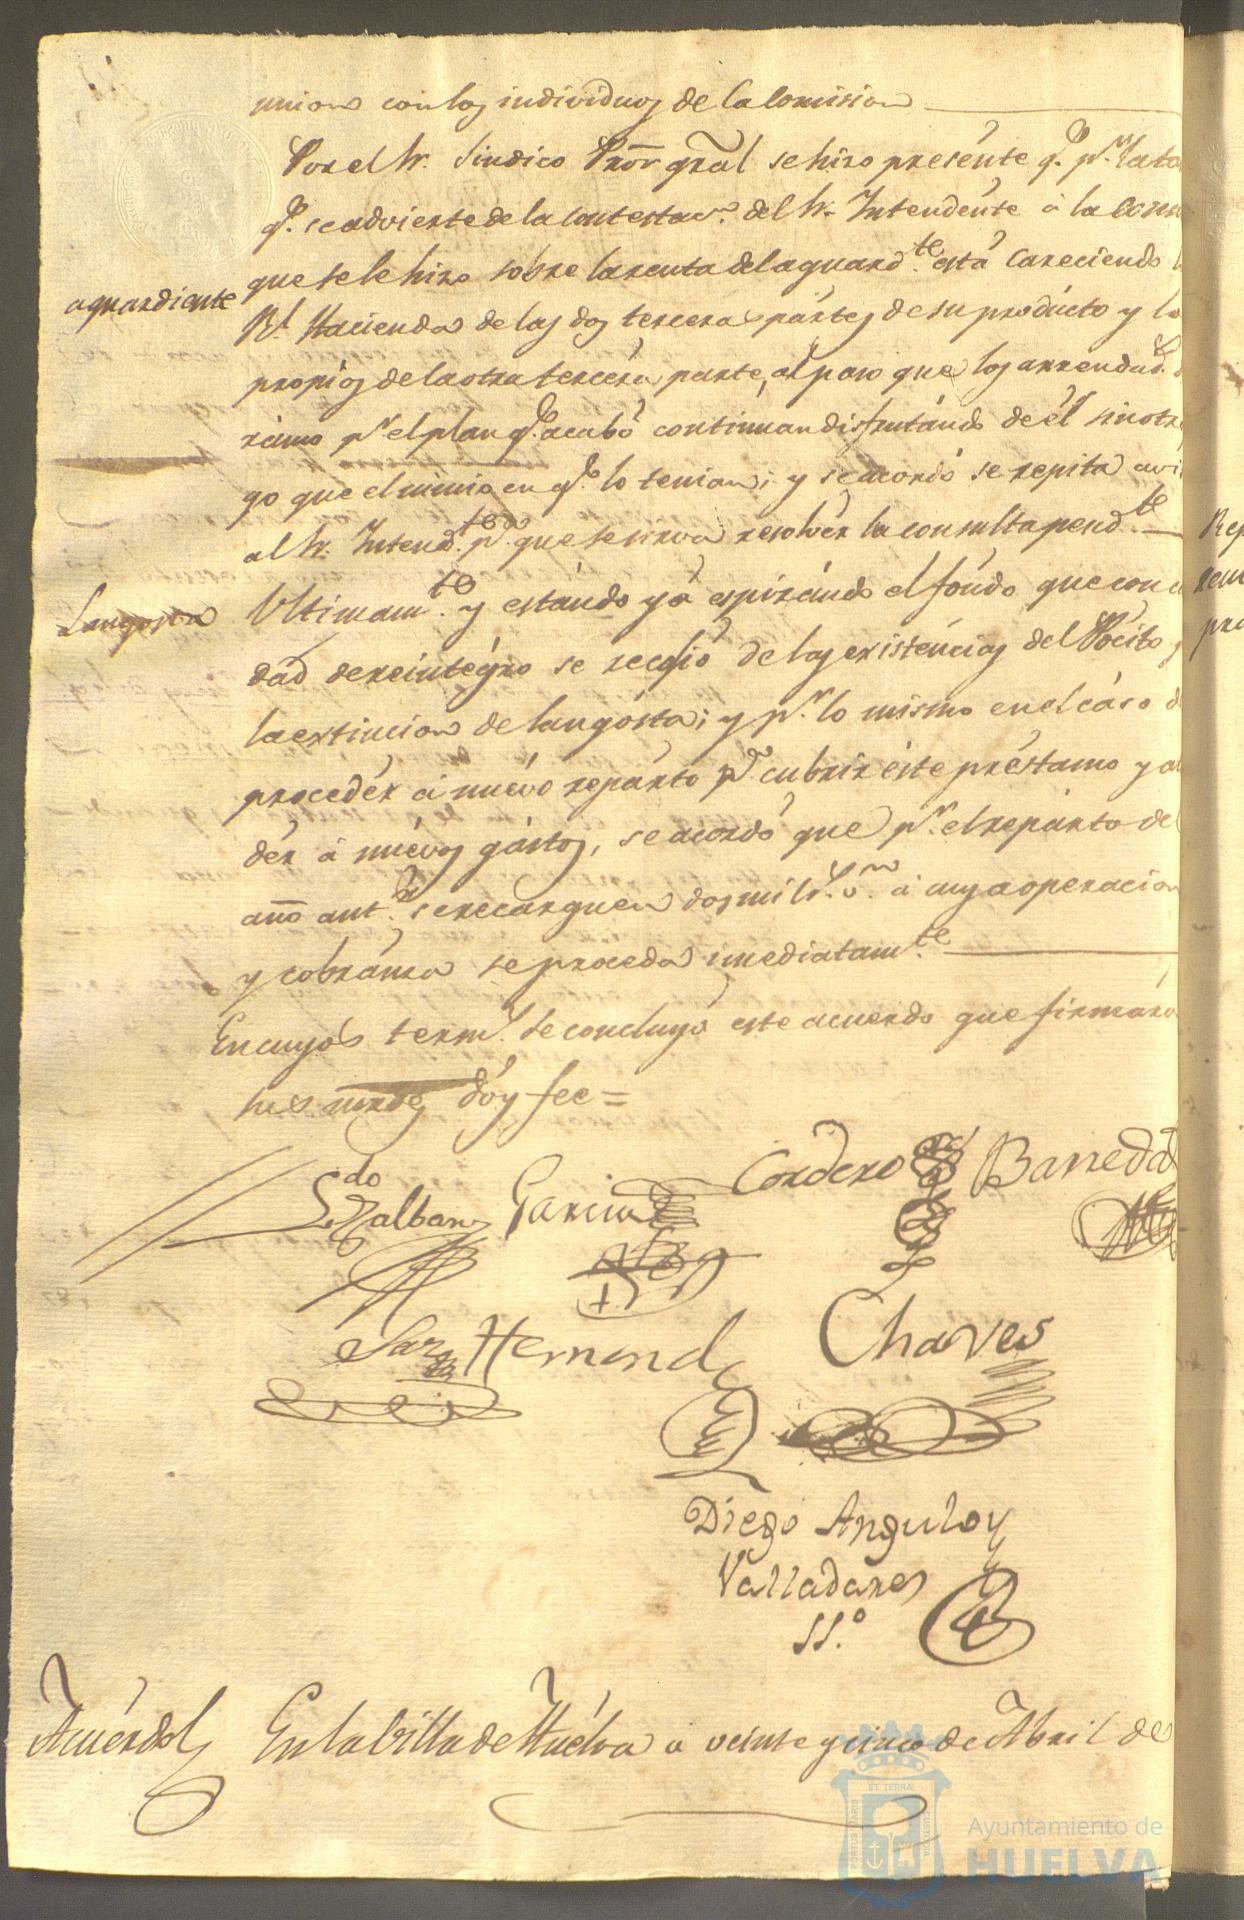 union con los individuos de la Comision
Por el Sr. Sindico Pror. gral se hizo presente q.e p.r
q.e se advierte de la Contestac.n del Sr. Intendente á la
que se le hizo sobre la renta del aguard.te está Careciendo
aguardiente
Rl. Hacienda de las dos terceras pártes de su prodúcto y
propios de la otra tercéra parte, al paso que los arrendad.s
ramo p.r el plan q.e acabó continuan disfrutándo de él sin
go que el mismo en q.e lo tenian; y se acordó se repita
al Sr. Intend.te p.a que se sirva resolvér la consulta pend.te
Langosta
Ultimam.te y estándo yá espirándo el fóndo que con
dad de reintégro se recojió de las existéncias del Pócito
la extincion de langósta; y p.r lo mismo en el cáso
procedér á nuévo repárto p.a cubrir éste préstamo y
dér á nuévos gástos, se acordó que p.r el repárto del
año ant.r se recarguen dos mil r.s v.n á cuya operacion
y cobránza se proceda imediatam.te
En cuyos term.s se concluyó este acuerdo que firmáro
sus mrds doy fee =
L.do Galban Garcia Cordero Barreda
Saz Hernand.z Chaves
Diego Angulo y
Valladares
SS.º
Acuérdo En la Villa de Huélva a veinte y cinco de Abril de
Ayuntamiento de
HUELVA